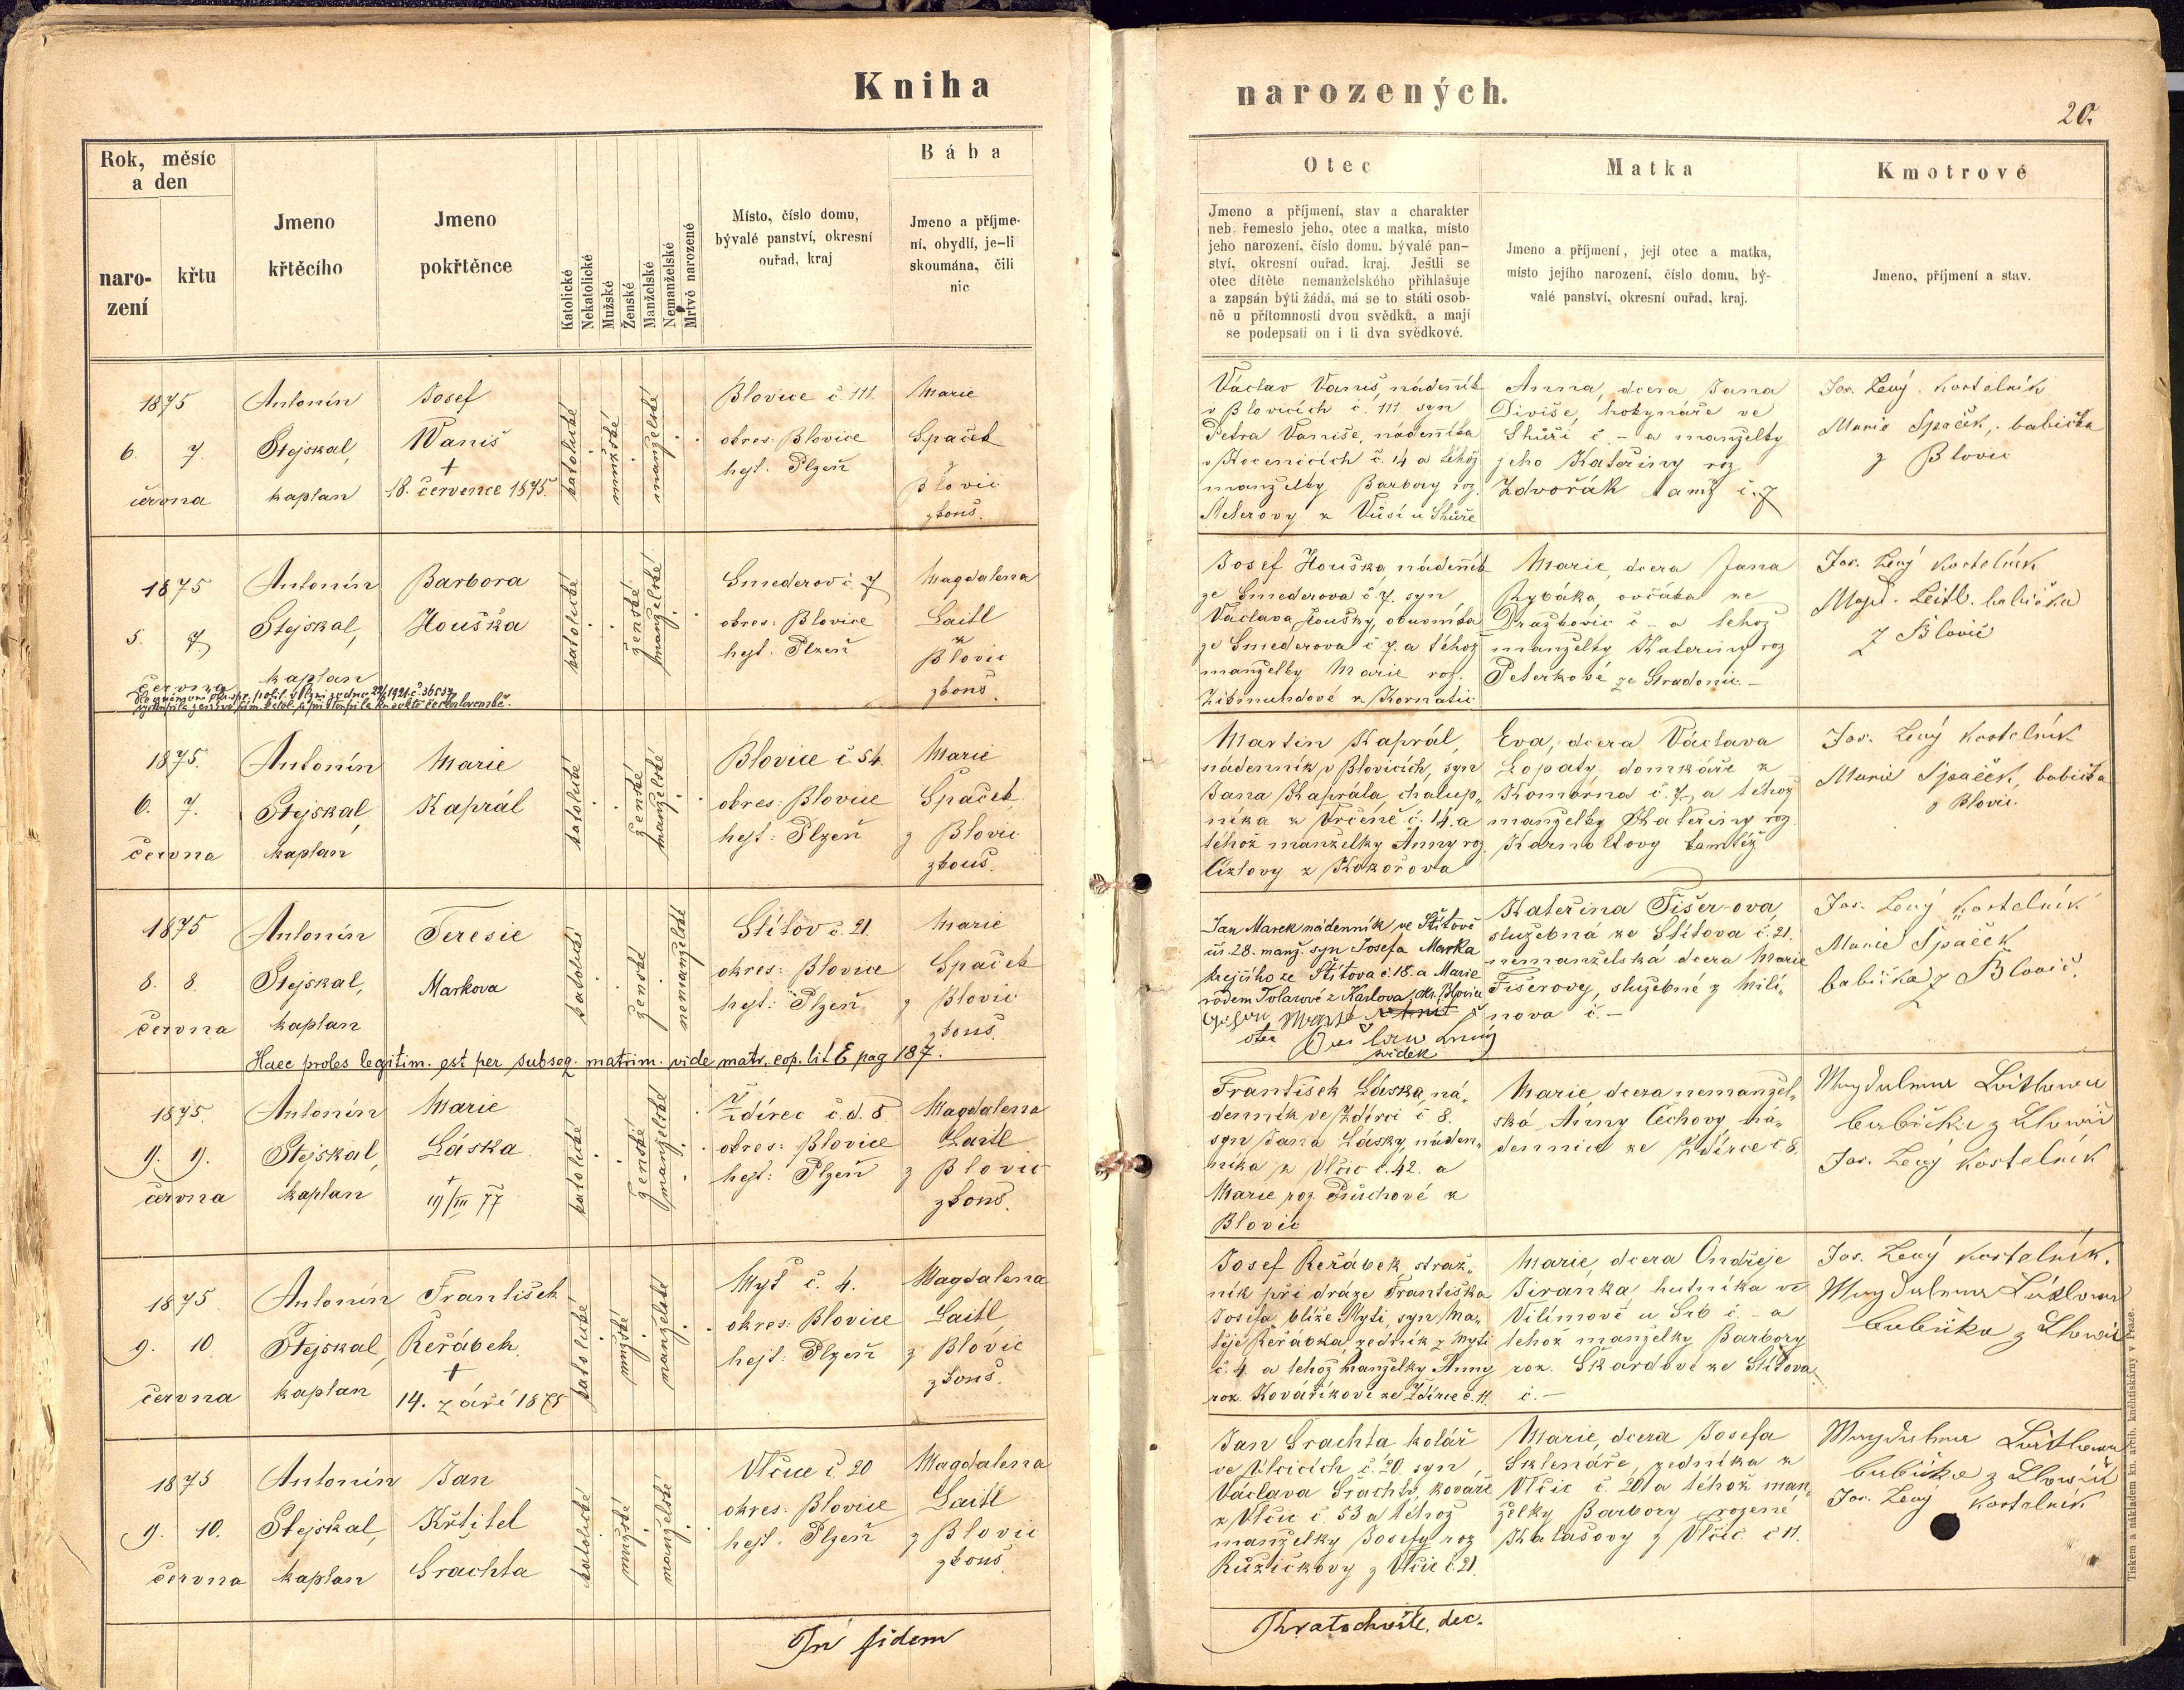 Kniha
narozených.
20.
Rok, měsíc
a den
naro-
zení
křtu
Jmeno
křtěcího
Jmeno
pokřtěnce
Katolické
Nekatolické
Mužské
Ženské
Manželské
Nemanželské
Mrtvě narozené
Místo, číslo domu,
bývalé panství, okresní
ouřad, kraj
Bába
Jmeno a příjme-
ní, obydlí, je-li
skoumána, čili
nic
Otec
Jmeno a příjmení, stav a charakter
neb řemeslo jeho, otec a matka, místo
jeho narození, číslo domu, bývalé pan-
ství, okresní ouřad, kraj. Ještli se
otec dítěte nemanželského přihlašuje
a zapsán býti žádá, má se to státi osob-
ně u přítomnosti dvou svědků, a mají
se podepsati on i ti dva svědkové.
Matka
Jmeno a příjmení, její otec a matka,
místo jejího narození, číslo domu, bý-
valé panství, okresní ouřad, kraj.
Kmotrové
Jmeno, příjmení a stav.
1875
6. 7.
června
Antonín
Stejskal,
kaplan
Josef
Waniš
+
18. července 1875.
katolické
mužské
manželské
Blovice č. 111.
okres: Blovice
hejt: Plzeň
Marie
Spaček
z
Blovic
zkouš.
Václav Vaniš, nádenník
v Blovicích č. 111. syn
Petra Vaniše, nádenníka
v Kocenicích č. 14 a téhož
manželky Barbory roz.
z Vůsí u Skůře
Anna, dcera Jana
Diviše, hokynáře ve
Skůří č. – a manželky
jeho Kateřiny roz
Zdvořák tamž č. 7
Jos. Levý kostelník
Marie Spaček, babička
z Blovic
1875
5. 7
června
Antonín
Stejskal,
kaplan
Barbora
Houška
katolické
ženské
manželské
Smederov č. 7
okres: Blovice
hejt. Plzeň
Magdalena
Laitl
z
Blovic
zkouš.
Josef Houška nádenník
ze Smederova č. 7. syn
Václava Houšky, obuvníka
ze Smederova č 7. a téhož
manželky Marie roz.
Zikmundové z Kornatic
Marie, dcera Jana
Rybáka ovčáka ze
Dražkovic č – a téhož
manželky Kateřiny roz
Peterkové ze Stradonic –
Jos. Levý kostelník
Magd. Leitl. babička
z Blovic
1875.
6. 7.
června
Antonín
Stejskal,
kaplan
Marie
Kaprál
katolické
ženské
manželské
Blovice č 54.
okres: Blovice
hejt: Plzeň
Marie
Spaček
z Blovic
zkouš.
Martin Kaprál,
nádenník v Blovicích, syn
Jana Kaprála chalup„
níka z Vrčéně č. 14. a
téhož manželky Anny roz.
Cíztovy z Kokořova
Eva, dcera Václava
Lopaty, domkáře z
Komorna č. 7, a téhož
manželky Kateřiny roz.
Karnoltovy tamtéž
Jos. Levý kostelník
Marie Spaček, babička
z Blovic.
1875
8. 8.
června
Antonín
Stejskal,
kaplan
Teresie
Markova
katolické
ženské
nemanželské
Stítov č. 21.
okres: Blovice
hejt: Plzeň
Marie
Spaček
z Blovic
zkouš.
Jan Marek nádenník ve Štítově
čís. 28. manž. syn Josefa Marka
krejčího ze Štítova č. 18. a Marie
rodem Tolarové z Karlova, okr. Blovice
otec
svědek
Kateřina Fišer-ova,
služebná ze Stítova č. 21.
nemanželská dcera Marie
Fišerovy, služebné z Milí„
nova č. –
Jos. Levý kostelník
Marie Spaček
babička z Blovic.
Haec proles legitim. est per subseq. matrim. vide matr. cop. lit E pag 187.
1875.
9. 9.
června
Antonín
Stejskal,
kaplan
Marie
Láska
+
19/III 77
katolické
ženské
manželské
Ždírec č. d. 8
okres: Blovice
hejt: Plzeň
Magdalena
Laitl
z Blovic
zkouš.
František Láska, ná„
denník ve Ždírci č 8.
syn Jana Lásky, náden„
níka z Vlčic č. 42. a
Marie roz. Průchové z
Blovic
Marie, dcera nemanžel„
ská, Anny Cechovy, ná„
dennice ze Ždírce č. 8.
Magdalena Laitlowa
babička z Blowic
Jos. Levý kostelník
1875.
9. 10.
června
Antonín
Stejskal,
kaplan
František
Řeřábek
+
14. září 1875
katolické
mužské
manželské
Myť č. 4.
okres: Blovice
hejt: Plzeň
Magdalena
Laitl,
z Blovic
zkouš.
Josef Řeřábek, straž„
ník při dráze Františka
Josefa, blíže Myti, syn Ma„
těje Řeřábka, zedník z Myti
č. 4. a téhož manželky Anny
roz. Kovaříkové ze Ždírce č. 11.
Marie, dcera Ondřeje
Jiranka hutníka ve
Vilímově u Srb č – a
téhož manželky Barbory
roz. Skardové ze Stítova
č. –
Jos. Levý kostelník.
Magdalena Laitlowa
babička z Blowic
1875
9. 10.
června
Antonín
Stejskal,
kaplan
Jan
Křtitel
Srachta
katolické
mužské
manželské
Vlčice č. 20
okres: Blovice
hejt. Plzeň
Magdalena
Laitl
z Blovic
zkouš.
Jan Srachta kolář
ve Vlčicích č. 20. syn,
Václava Srachty, kováře
z Vlčic č. 53 a téhož
manželky Josefy roz
Růžičkovy z Vlčic č. 21.
Marie, dcera Josefa
Sklenáře, zedníka z
Vlčic č. 20 a téhož man„
želky Barbory rozené
Kalašovy z Vlčic č 11.
Magdalena Laitlowa
babička z Blowic
Jos. Levý kostelník
In fidem
Kratochvíle, dec.
Tiskem a nákladem kn. arcib. knihtiskárny v Praze.